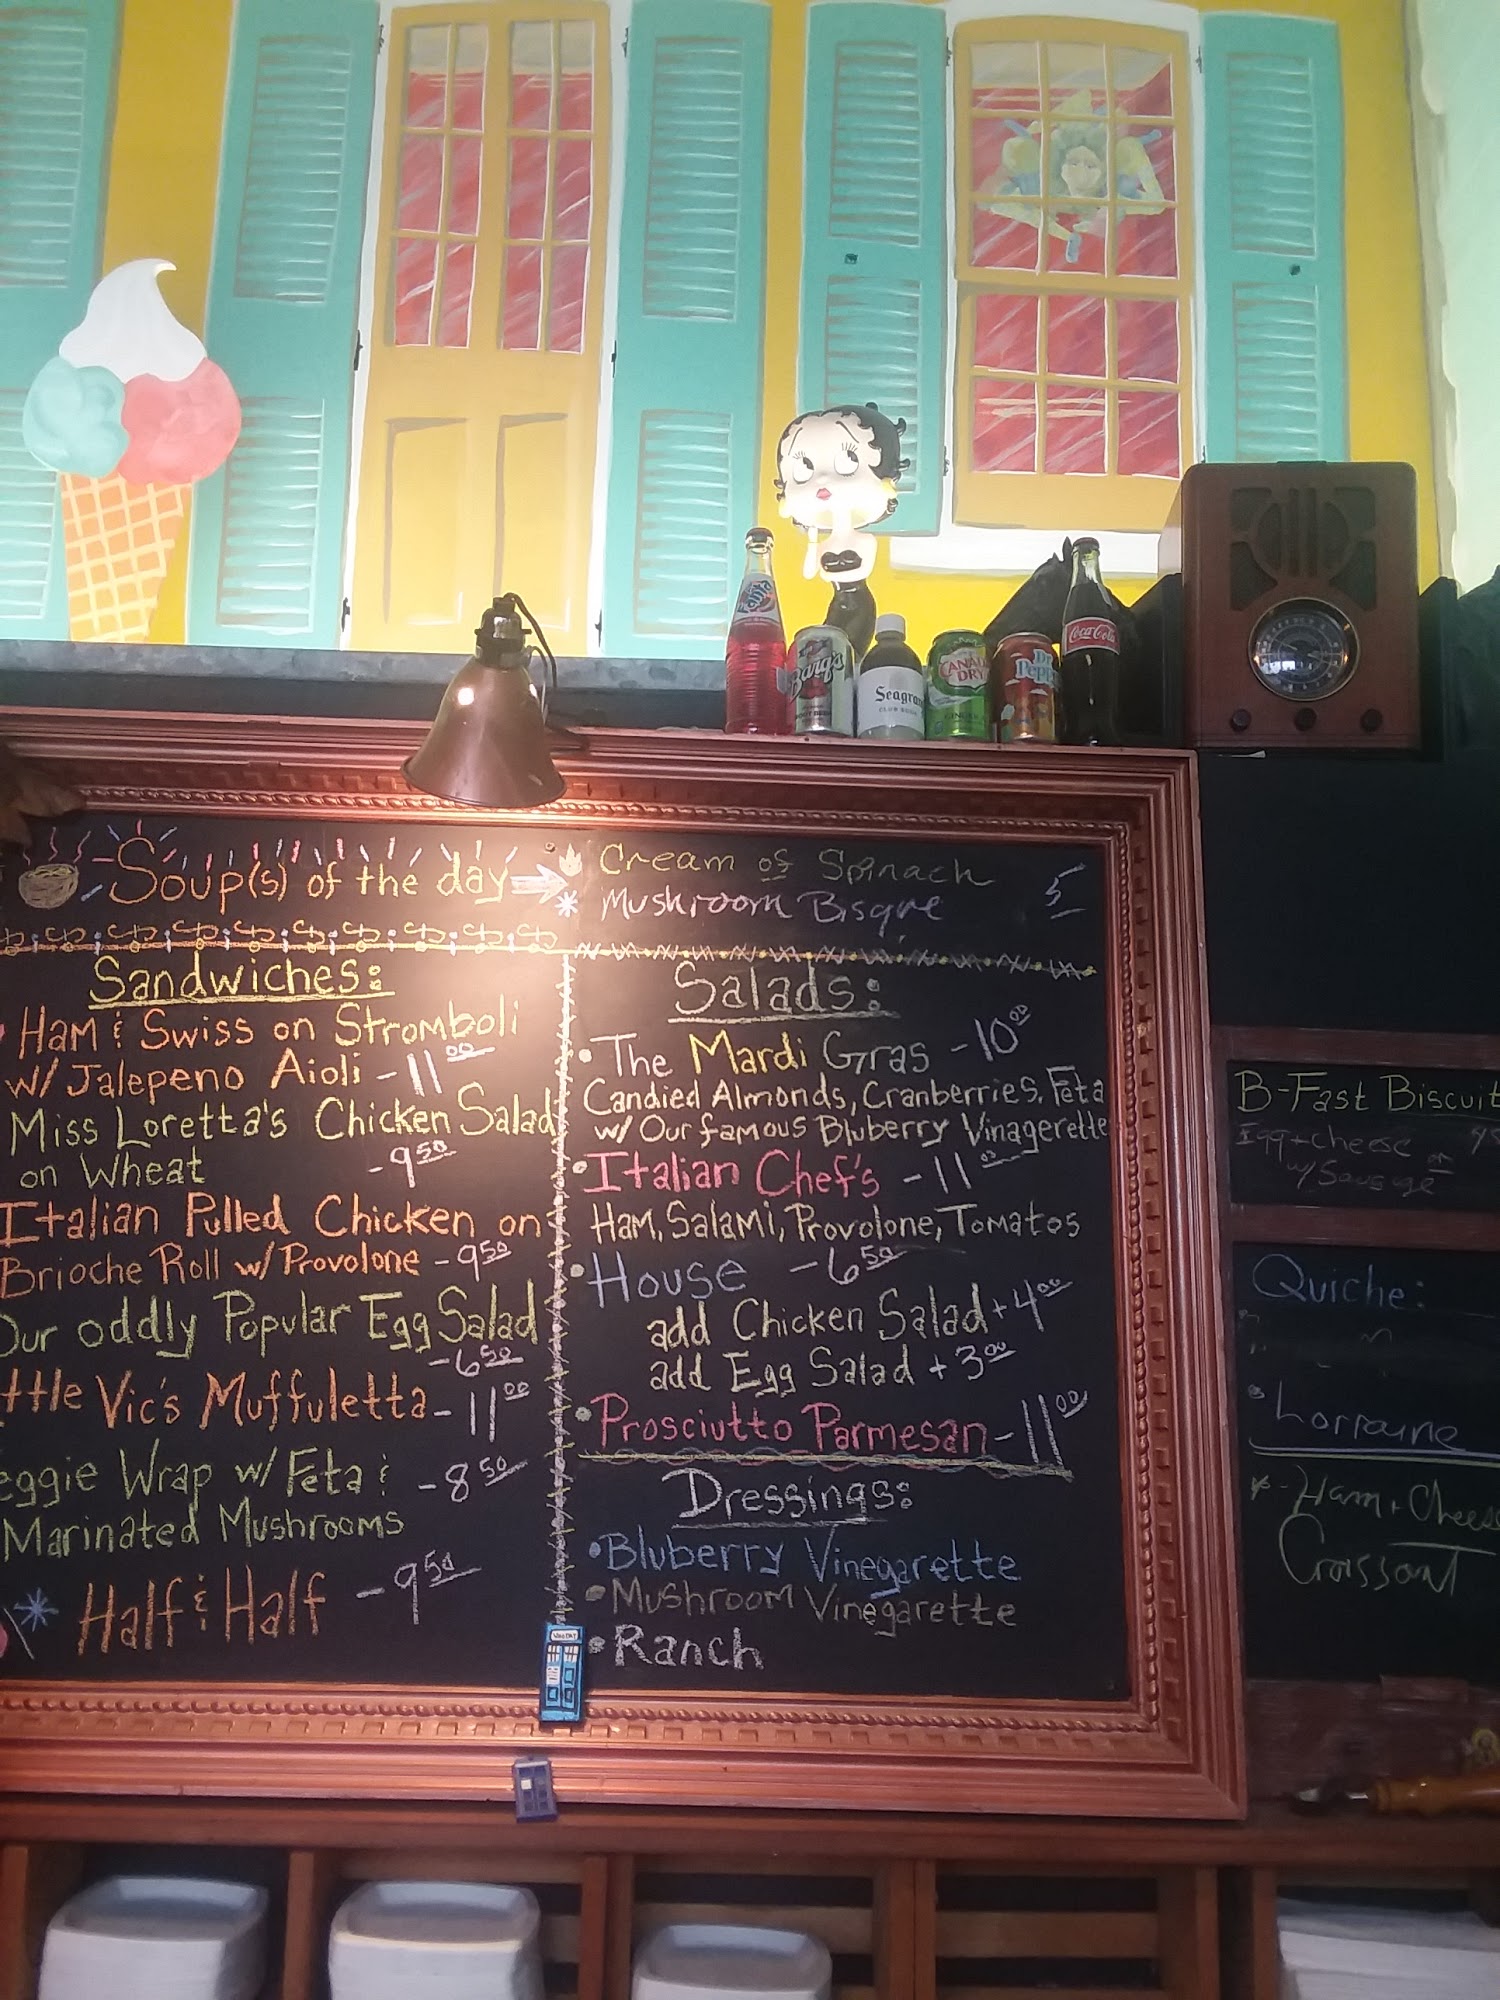 Fanta
Barq's
ROOT BEER
Seagra
CLUB SODA
CANADA
DRY
GINGER
Dr
Pepper
Coca-Cola
Soup(s) of the day
Cream of Spinach
Mushroom Bisque 5
Sandwiches:
Ham & Swiss on Stromboli
w/ Jalepeno Aioli - 11 00
Miss Loretta's Chicken Salad
on Wheat - 9 50
Italian Pulled Chicken on
Brioche Roll w/ Provolone - 9 50
Our oddly Popular Egg Salad
- 6 50
ttle Vic's Muffuletta - 11 00
eggie Wrap w/ Feta & - 8 50
Marinated Mushrooms
Half & Half - 9 50
Salads:
• The Mardi Gras - 10 00
Candied Almonds, Cranberries, Feta
w/ Our famous Bluberry Vinagerette
• Italian Chef's - 11 00
Ham, Salami, Provolone, Tomatos
• House - 6 50
add Chicken Salad + 4 00
add Egg Salad + 3 00
• Prosciutto Parmesan - 11 00
Dressings:
• Bluberry Vinegarette
• Mushroom Vinegarette
• Ranch
B-Fast Biscuit
Egg + cheese
w/ Sausage
Quiche:
• Lorraine
* - Ham + Cheese
Croissant